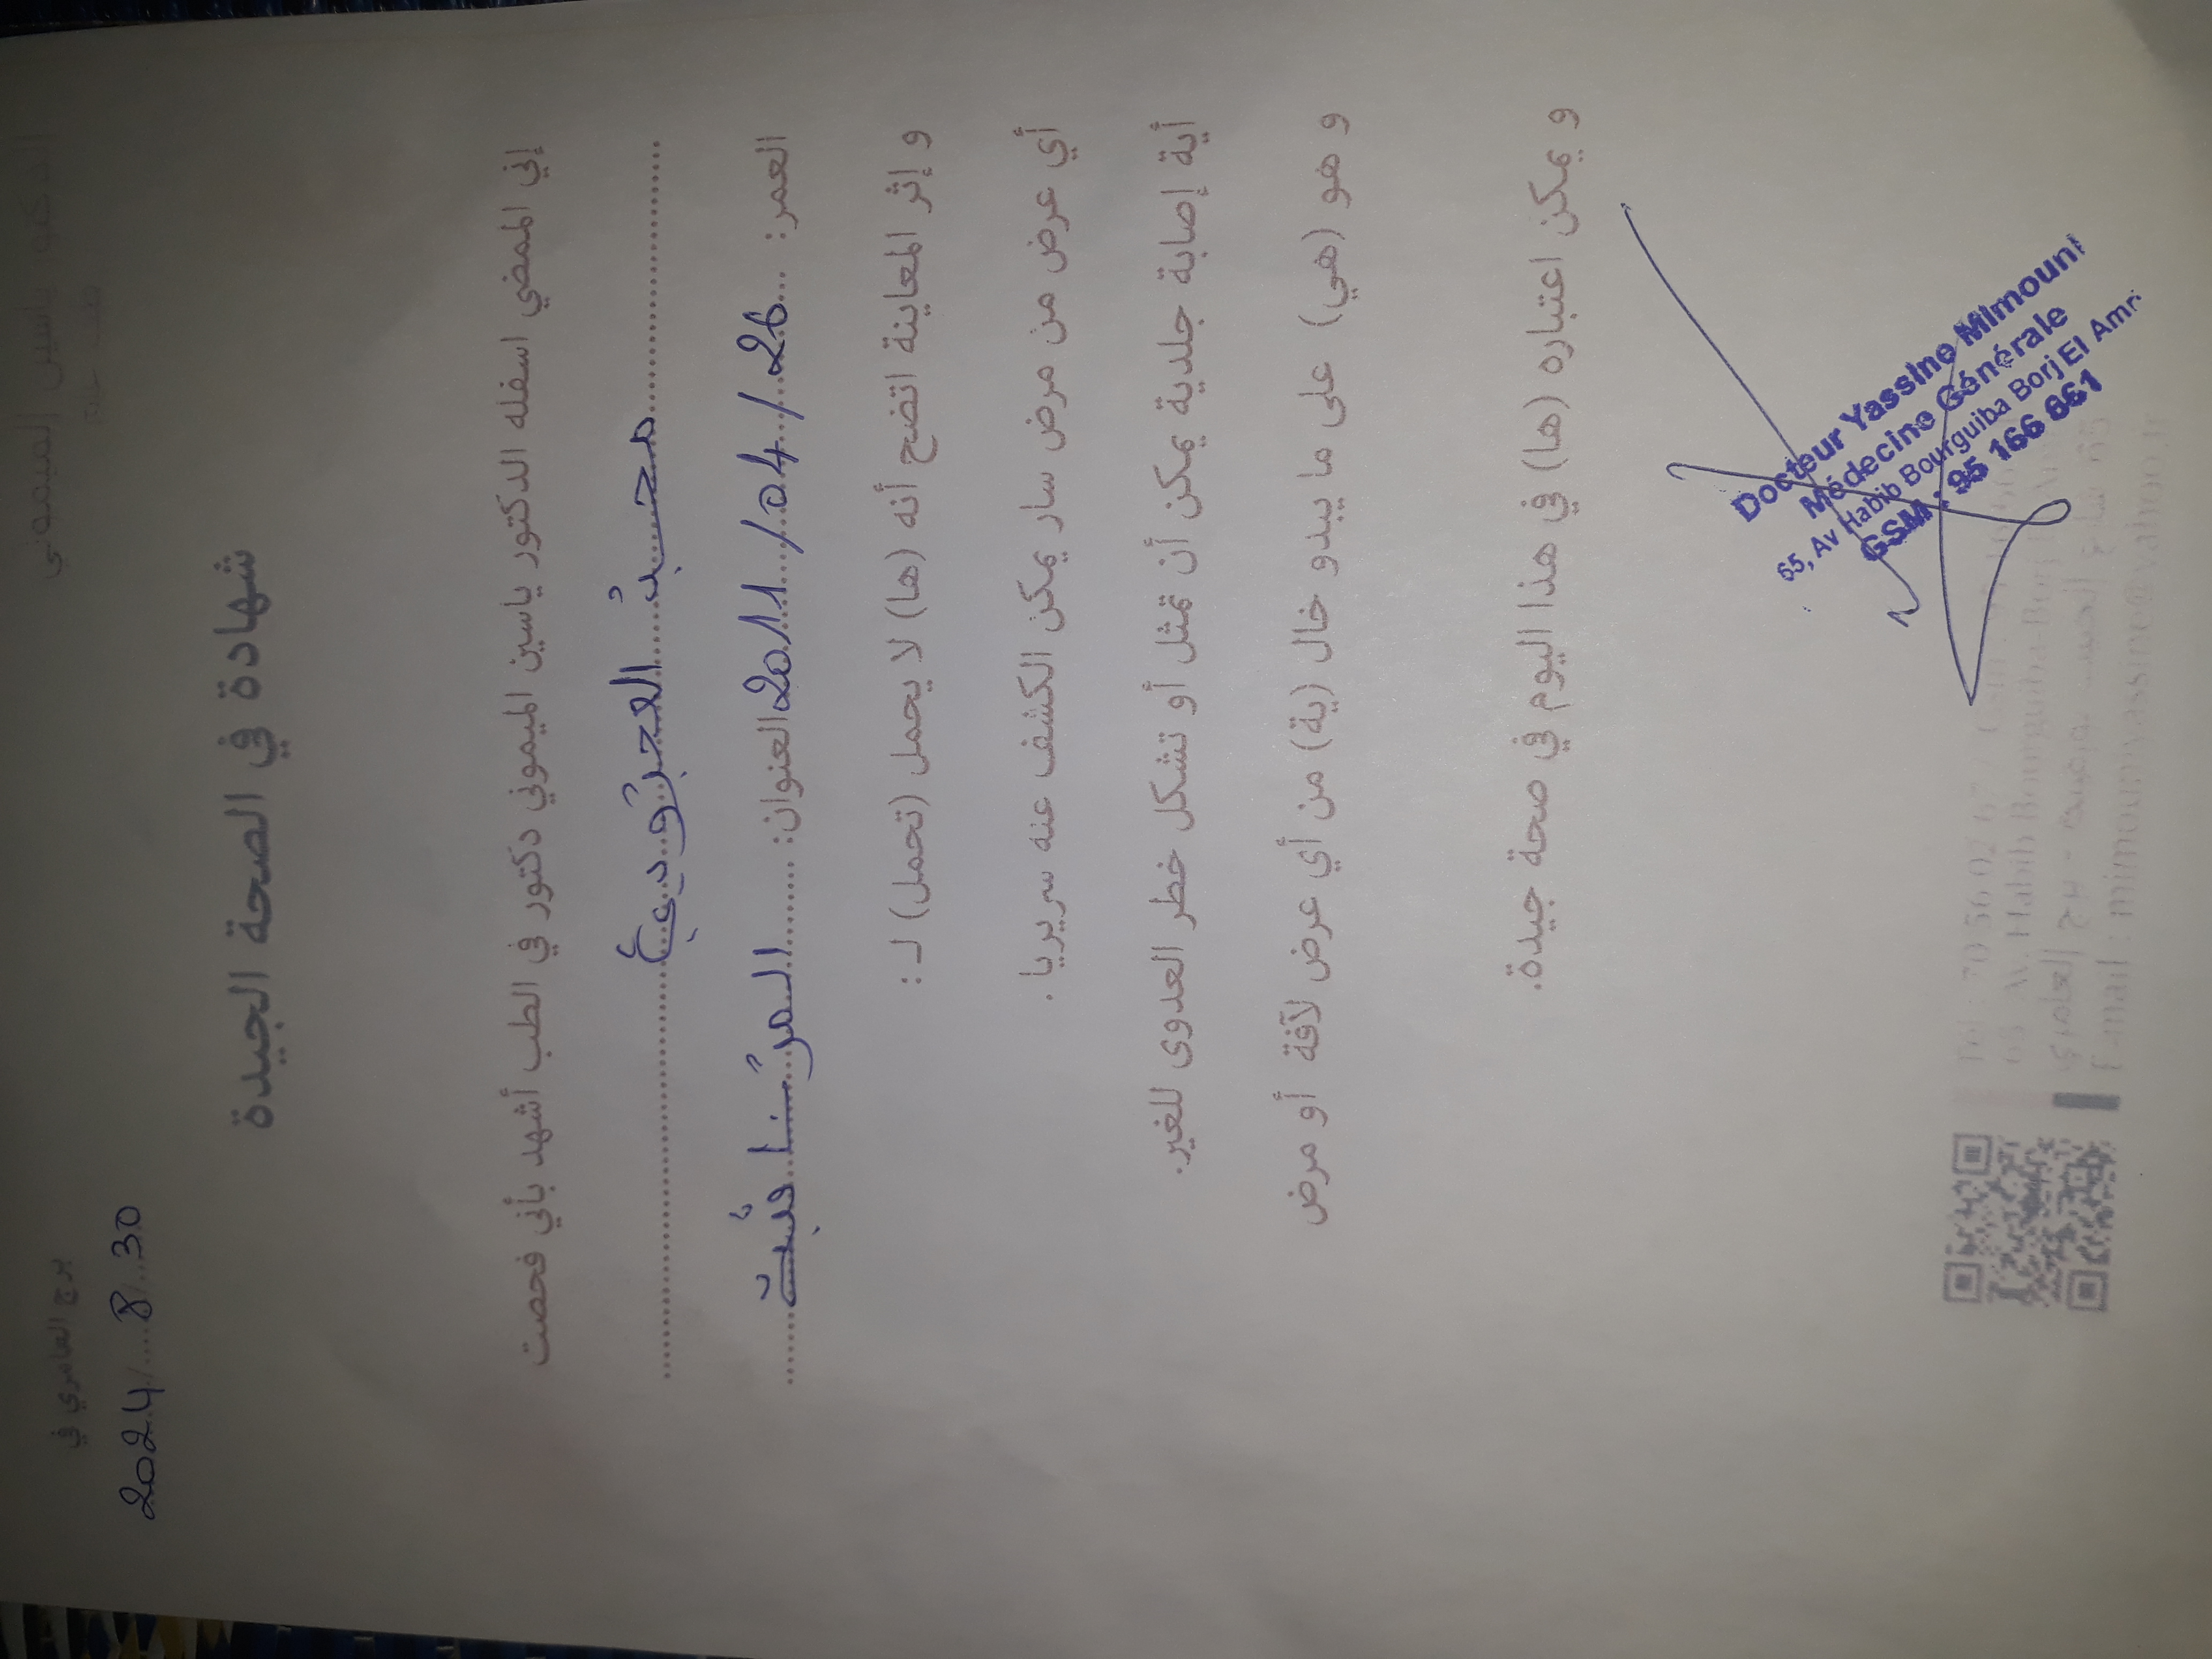 الدكتور ياسين الميموني
طب عام
برج العامري في
2024/8/30
شهادة في الصحة الجيدة
إني الممضي اسفله الدكتور ياسين الميموني دكتور في الطب أشهد بأني فحصت
محمد
العمر: 2011/04/26 العنوان: المرناقية
و إثر المعاينة اتضح أنه (ها) لا يحمل (تحمل) لـ :
أي عرض من مرض سار يمكن الكشف عنه سريريا .
أية إصابة جلدية يمكن أن تمثل أو تشكل خطر العدوى للغير.
و هو (هي) على ما يبدو خال (ية) من أي عرض لآفة أو مرض
و يمكن اعتباره (ها) في هذا اليوم في صحة جيدة.
Docteur Yassine Mimouni
Médecine Générale
65, Av Habib Bourguiba Borj El Amri
GSM : 95 166 661